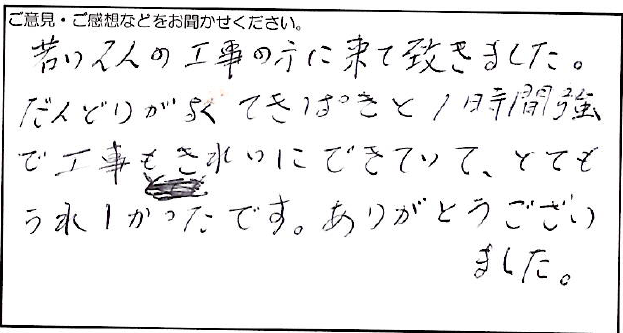 ご意見・ご感想などをお聞かせください。
若い2人の工事の方に来て致きました。
だんどりが良く てきぱきと 1時間強
で工事もきれいにできていて、とても
うれしかったです。ありがとうござい
ました。